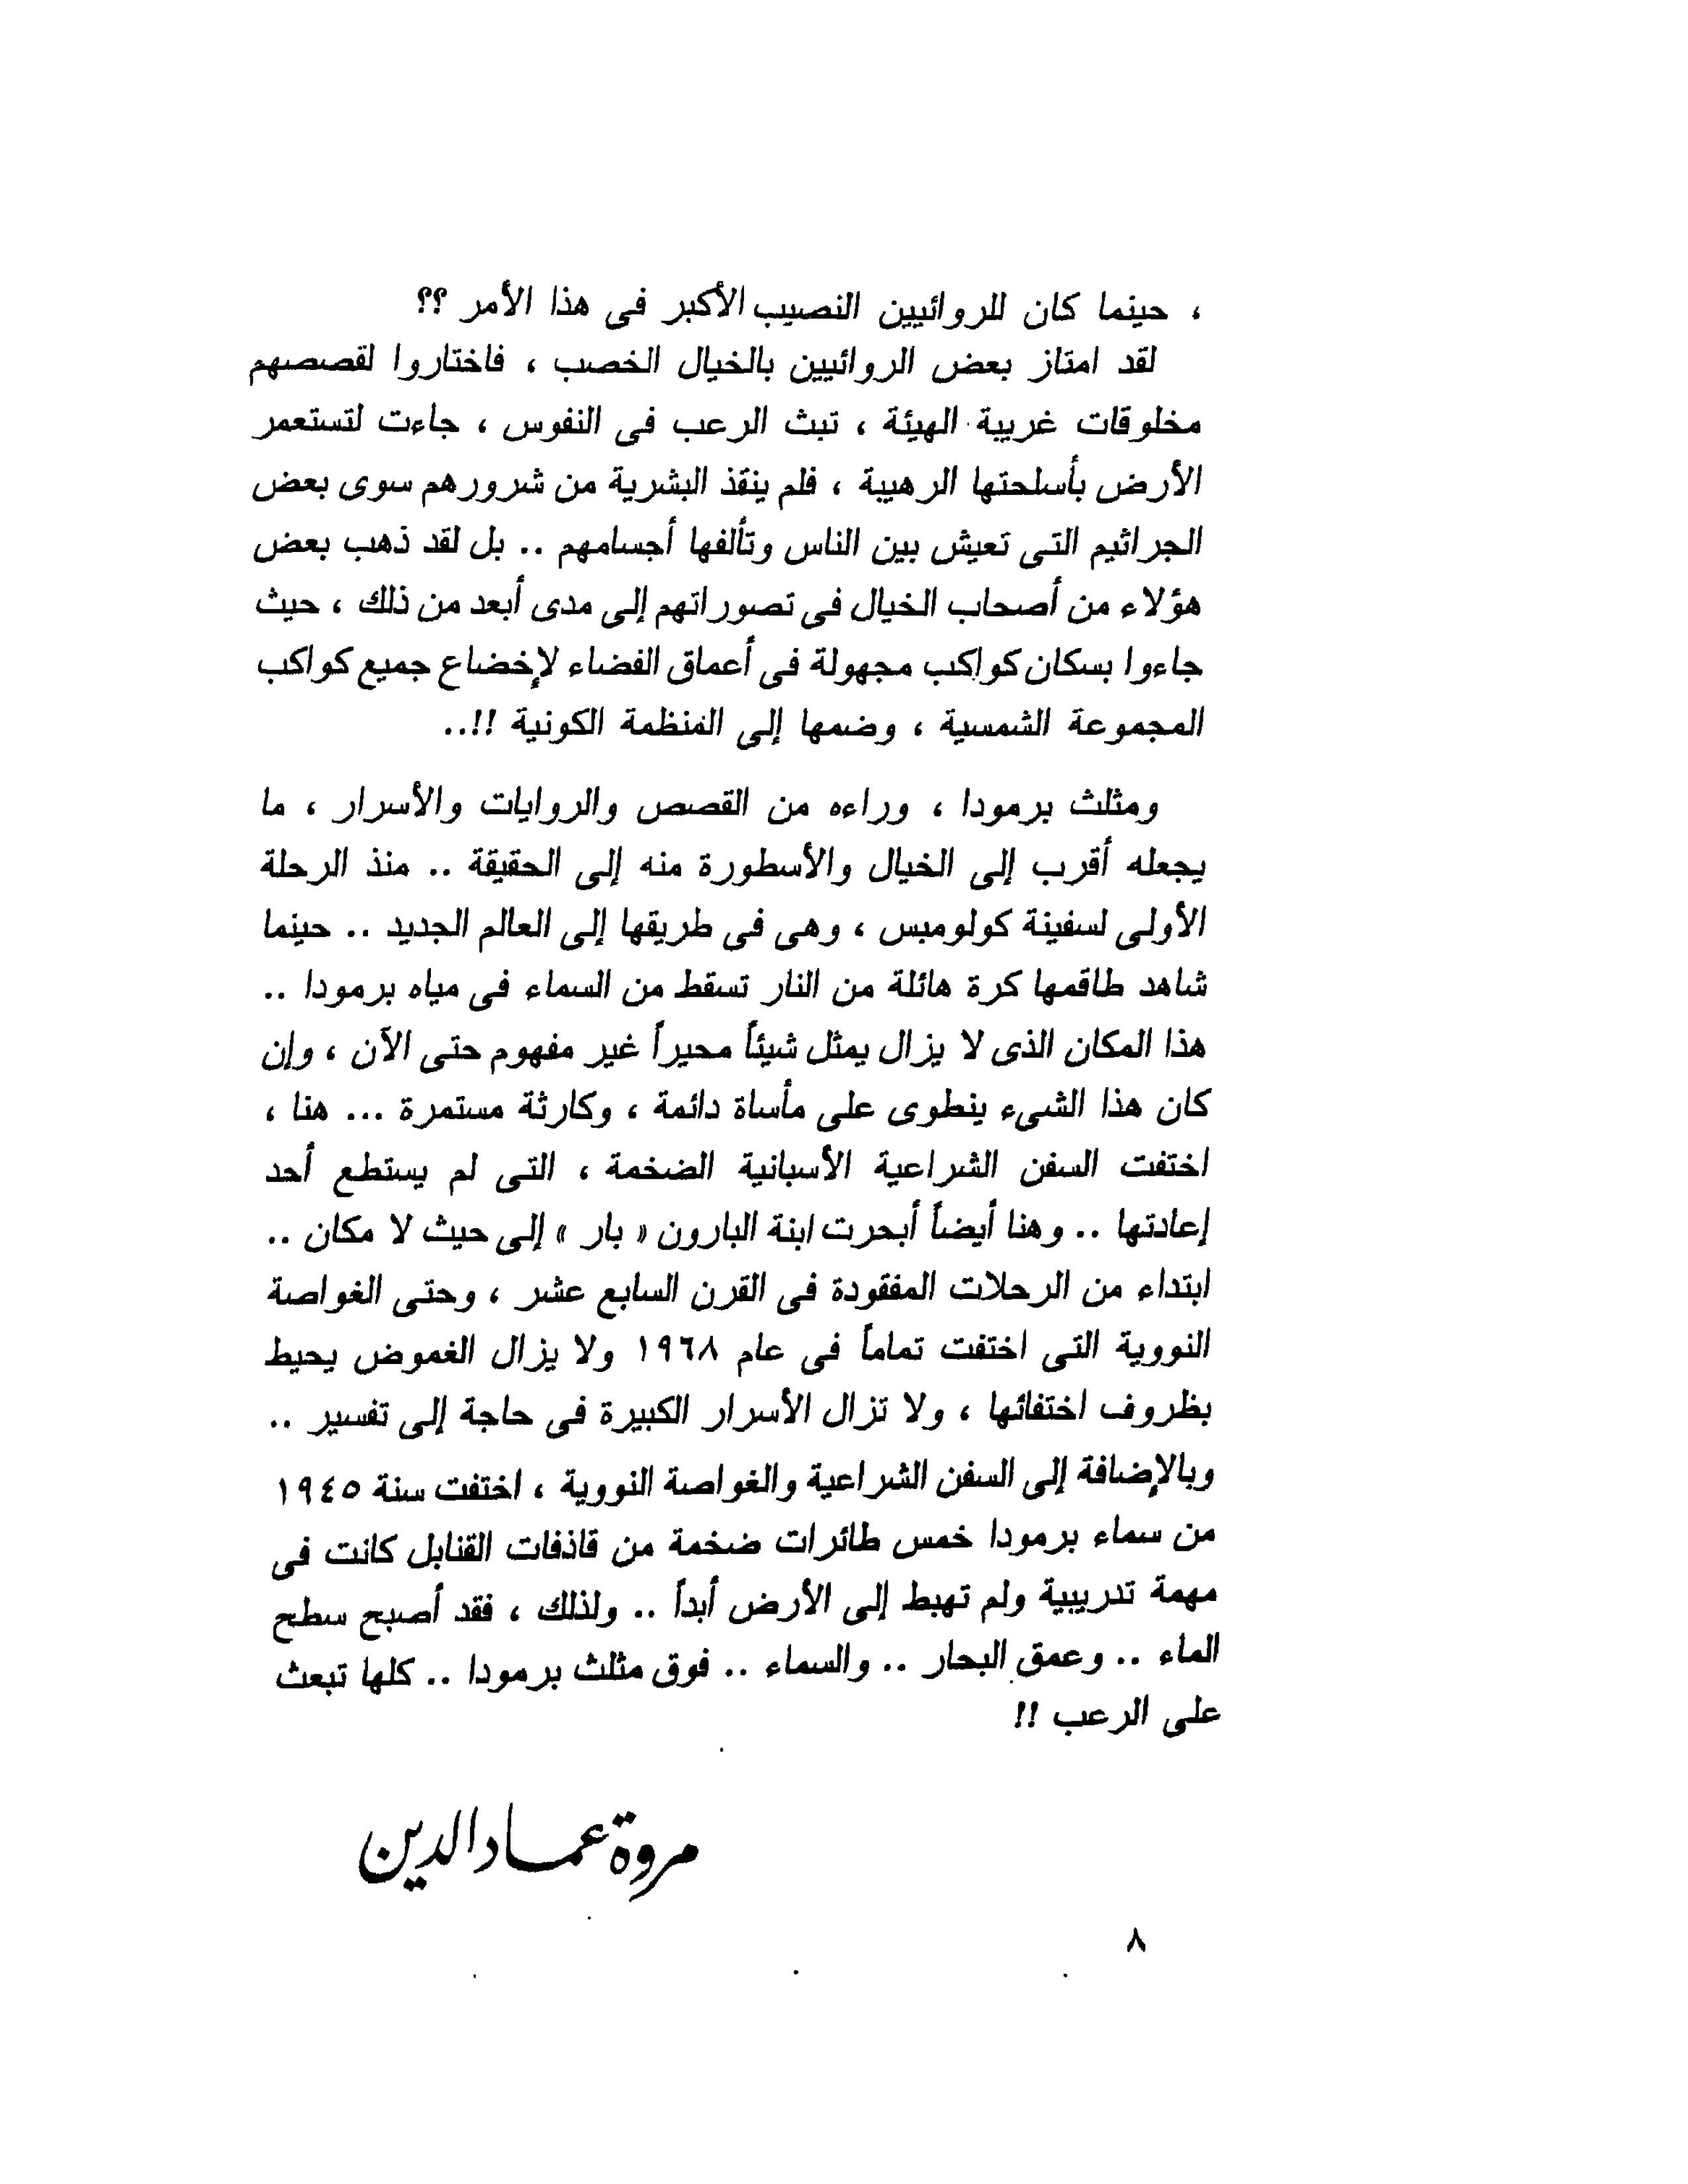 ، حينما كان للروائيين النصيب الأكبر فى هذا الأمر ؟؟
لقد امتاز بعض الروائيين بالخيال الخصب ، فاختاروا لقصصهم
مخلوقات غريبة الهيئة ، تبث الرعب فى النفوس ، جاءت لتستعمر
الأرض بأسلحتها الرهيبة ، فلم ينقذ البشرية من شرورهم سوى بعض
الجراثيم التى تعيش بين الناس وتألفها أجسامهم .. بل لقد ذهب بعض
هؤلاء من أصحاب الخيال فى تصوراتهم إلى مدى أبعد من ذلك ، حيث
جاءوا بسكان كواكب مجهولة فى أعماق الفضاء لإخضاع جميع كواكب
المجموعة الشمسية ، وضمها إلى المنظمة الكونية !!..
ومثلث برمودا ، وراءه من القصص والروايات والأسرار ، ما
يجعله أقرب إلى الخيال والأسطورة منه إلى الحقيقة .. منذ الرحلة
الأولى لسفينة كولومبس ، وهى فى طريقها إلى العالم الجديد .. حينما
شاهد طاقمها كرة هائلة من النار تسقط من السماء فى مياه برمودا ..
هذا المكان الذى لا يزال يمثل شيئاً محيراً غير مفهوم حتى الآن ، وإن
كان هذا الشىء ينطوى على مأساة دائمة ، وكارثة مستمرة ... هنا ،
اختفت السفن الشراعية الأسبانية الضخمة ، التى لم يستطع أحد
إعادتها .. وهنا أيضاً أبحرت ابنة البارون « بار » إلى حيث لا مكان ..
ابتداء من الرحلات المفقودة فى القرن السابع عشر ، وحتى الغواصة
النووية التى اختفت تماماً فى عام ١٩٦٨ ولا يزال الغموض يحيط
بظروف اختفائها ، ولا تزال الأسرار الكبيرة فى حاجة إلى تفسير ..
وبالإضافة إلى السفن الشراعية والغواصة النووية ، اختفت سنة ١٩٤٥
من سماء برمودا خمس طائرات ضخمة من قاذفات القنابل كانت فى
مهمة تدريبية ولم تهبط إلى الأرض أبداً .. ولذلك ، فقد أصبح سطح
الماء .. وعمق البحار .. والسماء .. فوق مثلث برمودا .. كلها تبعث
على الرعب !!
مروة عماد الدين
٨